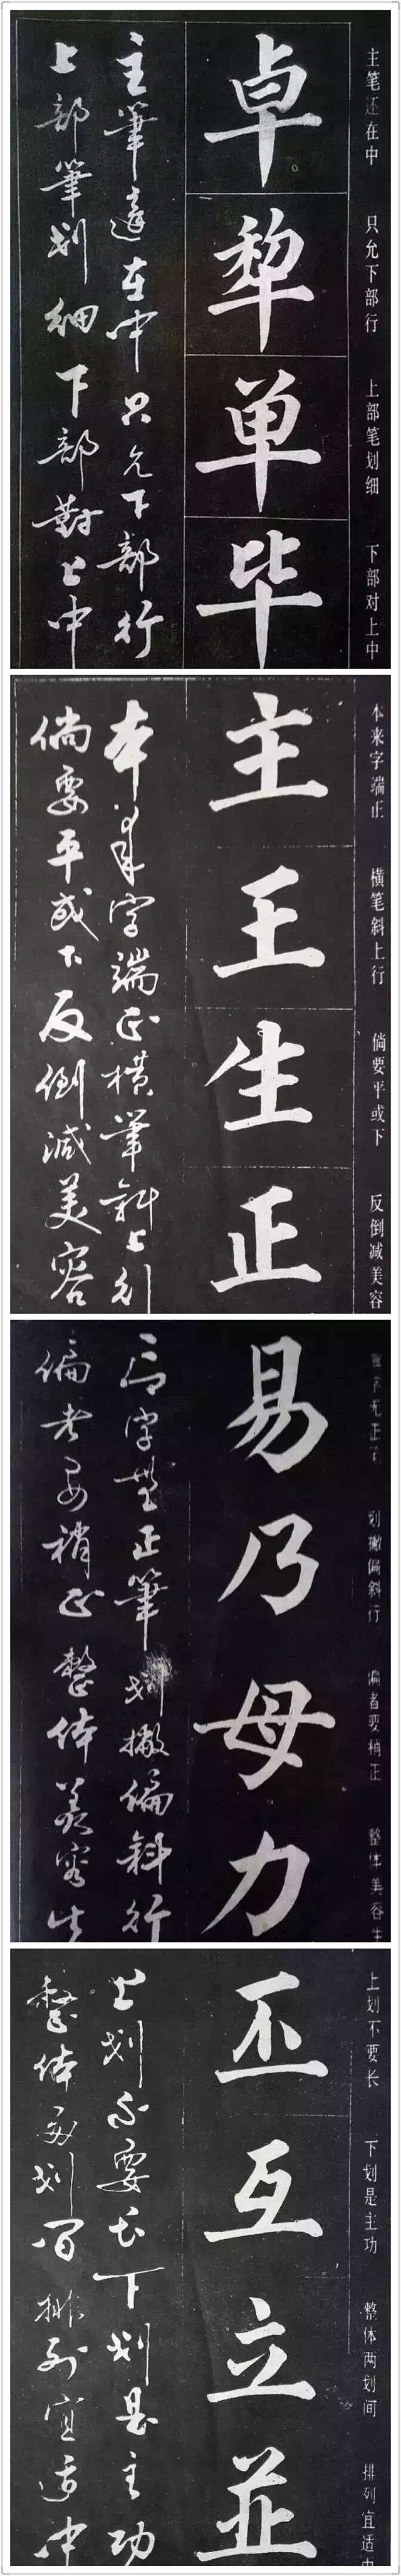 主笔还在中 只允下部行 上部笔划细 下部对上中
卓犂单毕
主筆還在中只允下部行
上部筆划细下部對上中
本来字端正 横笔斜上行 倘要平或下 反倒减美容
主王生正
本来字端正横筆斜上行
倘要平或下反倒减美容
无正 划撇偏斜行 偏者要稍正 整体美容生
易乃母力
字無正筆划撇偏斜行
偏者要稍正整体美容生
上划不要长 下划是主功 整体两划间 排列宜适中
丕互立並
上划不要长下划是主功
整体两划间排列宜适中